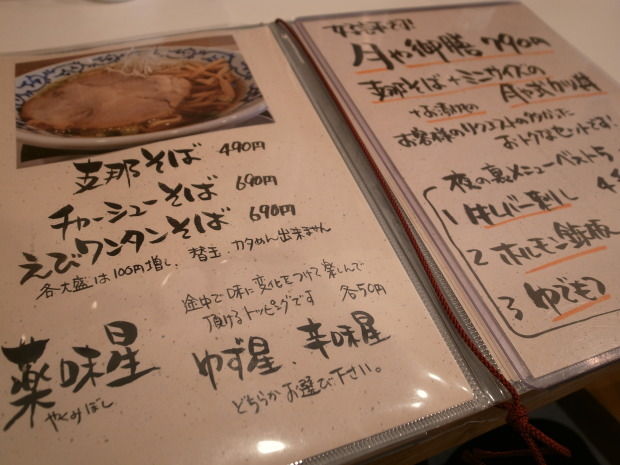 支那そば 490円
チャーシューそば 690円
えびワンタンそば 690円
各大盛は100円増し、替玉、カタめん出来ません
途中で味に変化をつけて楽しんで
頂けるトッピングです 各50円
薬味星
やくみぼし
ゆず星、辛味星
どちらかお選び下さい。
御膳 790円
支那そば+ミニサイズの
お客様のリクエストの
おトクなセットです!
夜の裏メニューベスト5
1 牛レバー刺し
2 ホルモン鉄板
3 ゆでもつ